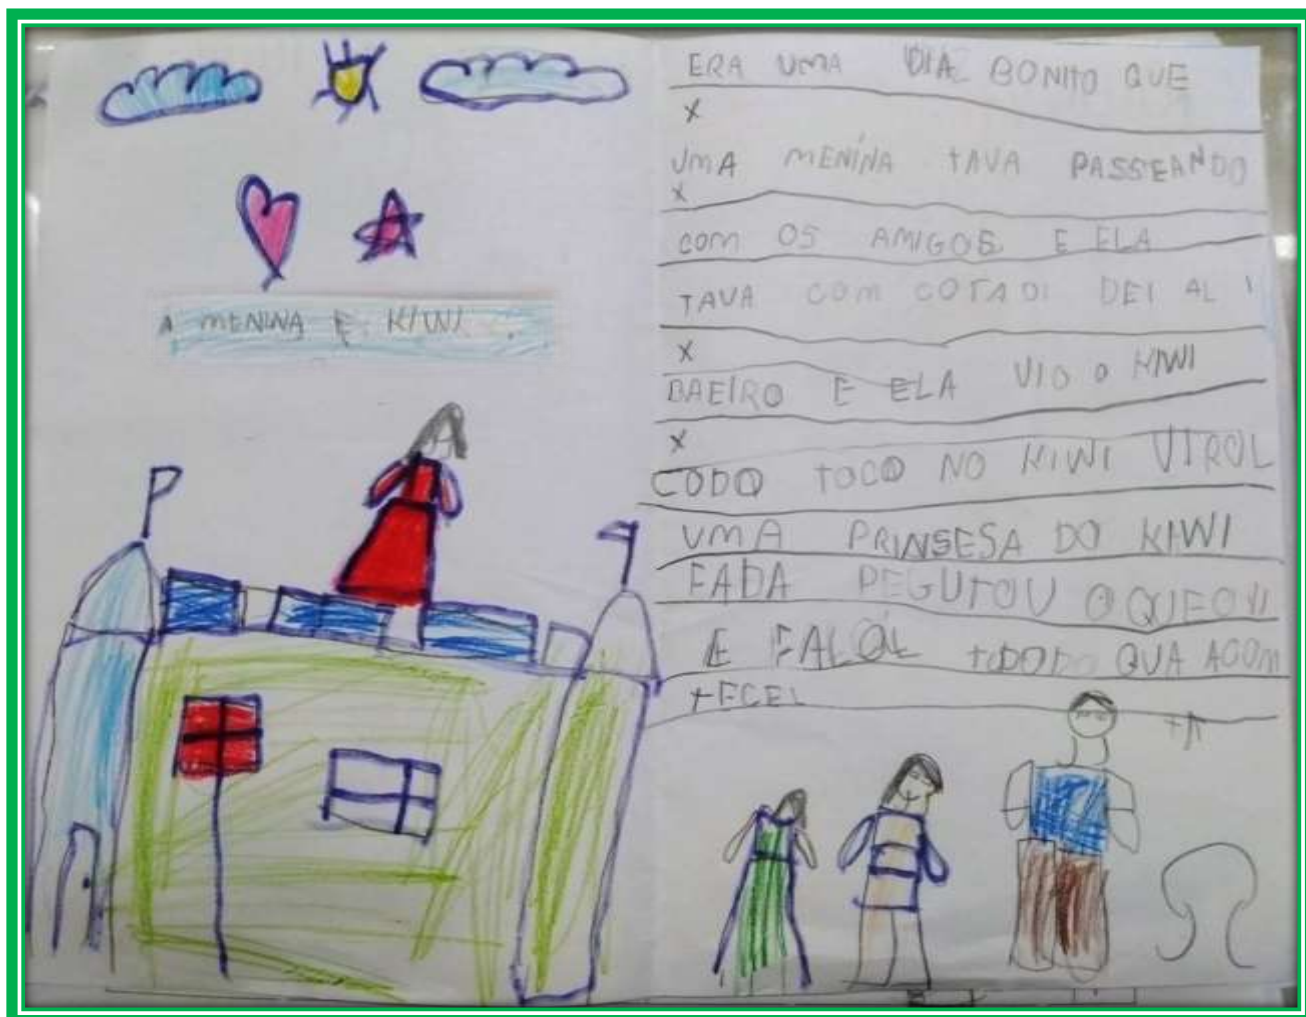 A MENINA E KIWI
ERA UMA DIA BONITO QUE
X
UMA MENINA TAVA PASSEANDO
X
COM OS AMIGOS E ELA
TAVA COM COTADI DEI AL I
X
BAEIRO E ELA VIO O KIWI
X
CODO TOCO NO KIWI VIROL
UMA PRINSESA DO KIWI
FADA PEGUTOU O QUE
E FALOL QUA ACOM
TECEL